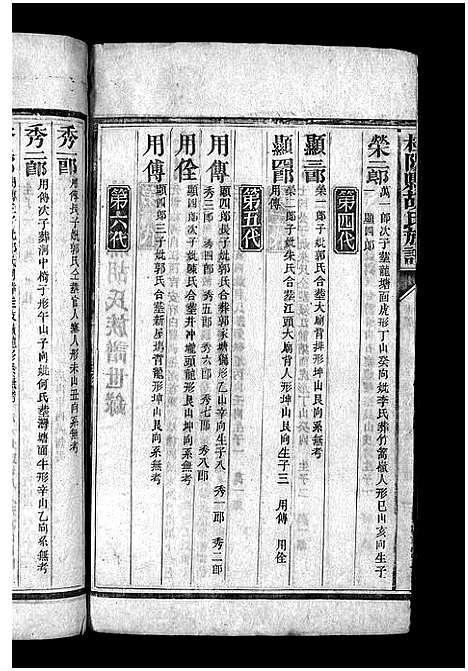 胡氏族譜
榮二郎 萬一郎次子塟龍塘面虎形丁山癸向妣李氏葬竹篙嶺人形巳山亥向生子一
顯四郎
第四代
顯三郎 榮一郎子妣郭氏合塟大廟背排形坤山艮向系無考
顯四郎 榮二郎子妣朱氏合塟江頭大廟背人形坤山艮向生子三 用傳 用佺
第五代
用傳 顯四郎長子妣郭氏合塟郭家塘鵝形乙山辛向生子八 秀一郎 秀二郎
秀三郎 秀四郎 秀五郎 秀六郎 秀七郎 秀八郎
用佺 顯四郎次子妣陳氏合塟井冲壠頭龍形艮山坤向系無考
用傅 顯四郎三子妣郭氏合塟新屋塲背龍形坤山艮向系無考
第六代
胡氏族譜世錄
秀一郎 用傳長子妣郭氏仝塟官人寨人形未山丑向系無考
秀二郎 用傳次子葬洞中椅丁形午山子向妣何氏塟灣塘面牛形辛山乙向系無考